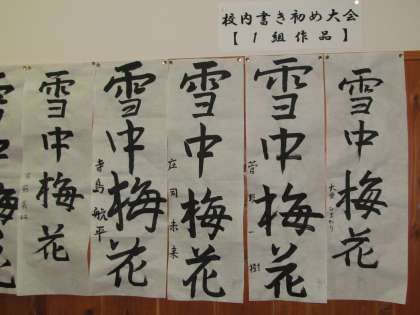 校内書き初め大会
【1組作品】
雪中梅花
大曽ひまわり
雪中梅花
菅野一樹
雪中梅花
立司未来
雪中梅花
寺島敏平
雪中梅花